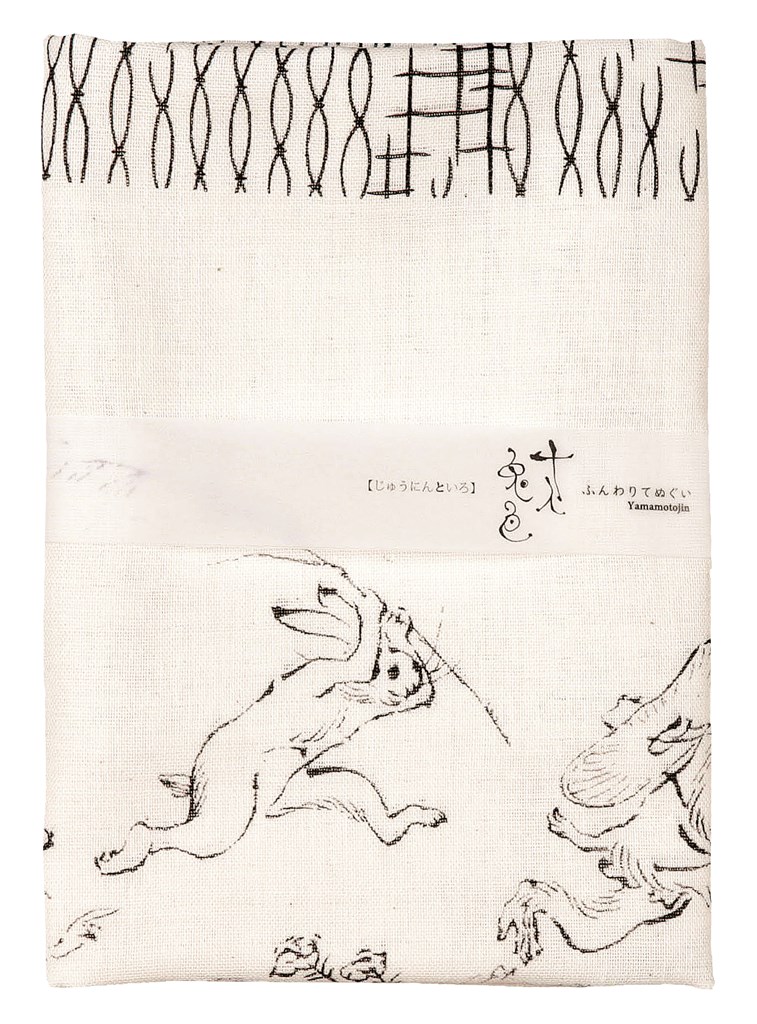 【じゅうにんといろ】
十人
兎色
ふんわりてぬぐい
Yamamotojin